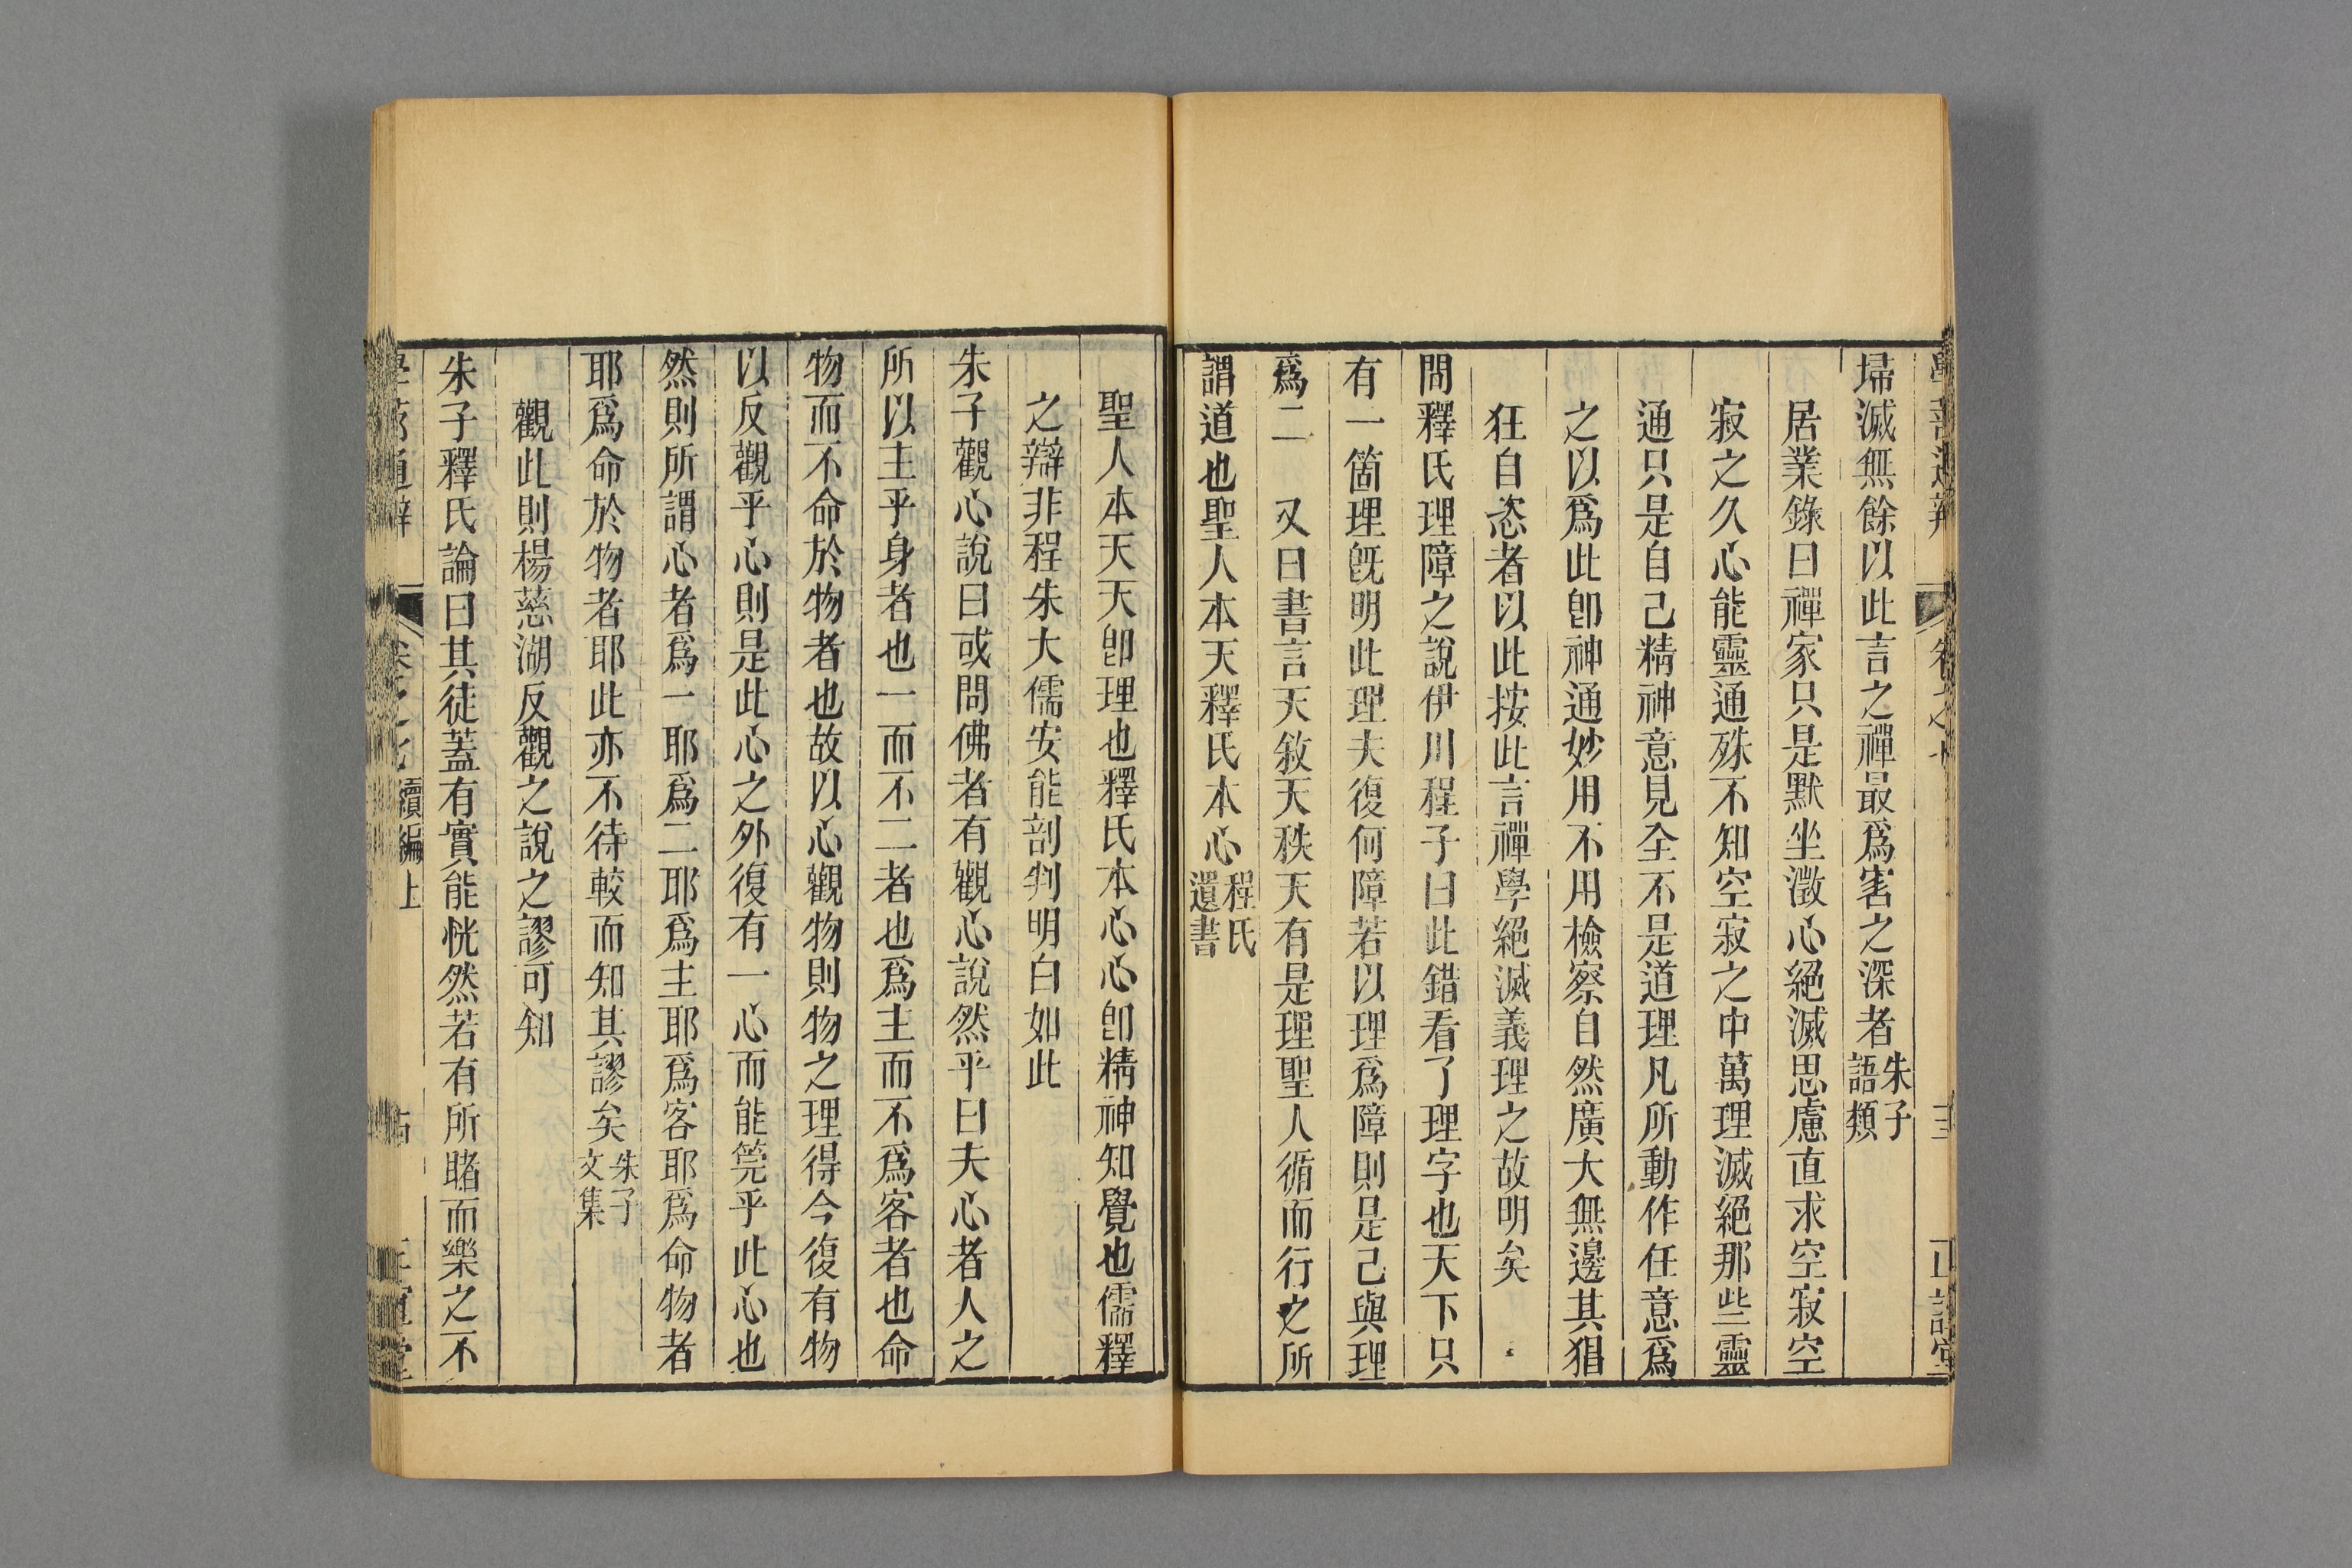 掃滅無餘以此言之禪最爲害之深者朱子語類
居業錄曰禪家只是默坐澂心絕滅思慮直求空寂空
寂之久心能靈通殊不知空寂之中萬理滅絕那些靈
通只是自己精神意見全不是道理凡所動作任意爲
之以爲此卽神通妙用不用檢察自然廣大無邊其猖
狂自恣者以此按此言禪學絕滅義理之故明矣
問釋氏理障之說伊川程子曰此錯看了理字也天下只
有一箇理旣明此理夫復何障若以理爲障則是己與理
爲二 又曰書言天敘天秩天有是理聖人循而行之所
謂道也聖人本天釋氏本心程氏遺書
聖人本天天卽理也釋氏本心心卽精神知覺也儒釋
之辯非程朱大儒安能剖判明白如此
朱子觀心說曰或問佛者有觀心說然乎曰夫心者人之
所以主乎身者也一而不二者也爲主而不爲客者也命
物而不命於物者也故以心觀物則物之理得今復有物
以反觀乎心則是此心之外復有一心而能筦乎此心也
然則所謂心者爲一耶爲二耶爲主耶爲客耶爲命物者
耶爲命於物者耶此亦不待較而知其謬矣朱子文集
觀此則楊慈湖反觀之說之謬可知
朱子釋氏論曰其徒蓋有實能恍然若有所睹而樂之不
續編上